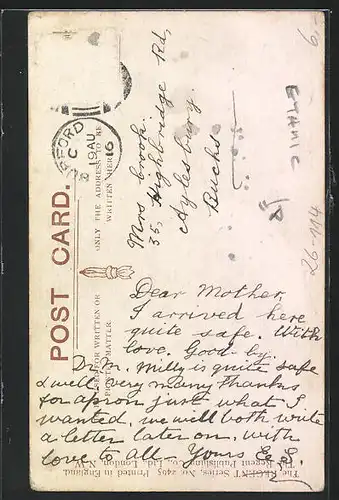 POST CARD.
FOR WRITTEN OR
PRINTED MATTER.
ONLY THE ADDRESS TO BE
WRITTEN HERE
FFORD
C
19 AU
16
Mrs Crook.
35, Highbridge Rd,
Aylesbury.
Bucks
Dear Mother,
I arrived here
quite safe. With
love. Good-by.
Dr M. Milly is quite safe
& well very many thanks
for apron just what I
wanted. we will both write
a letter later on. with
love to all. Yours E. S.
The REGENT Series, No. 2495 Printed in England
The Regent Publishing Co., Ltd., London, N.W.
6,-
ETHNIC
26-114